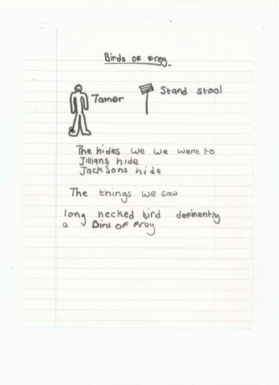 Birds of Prey
Tamer
Stand stool
The hides we we went to
Jilians hide
Jacksons hide
The things we saw
long necked bird deminently
a Bird of Prey